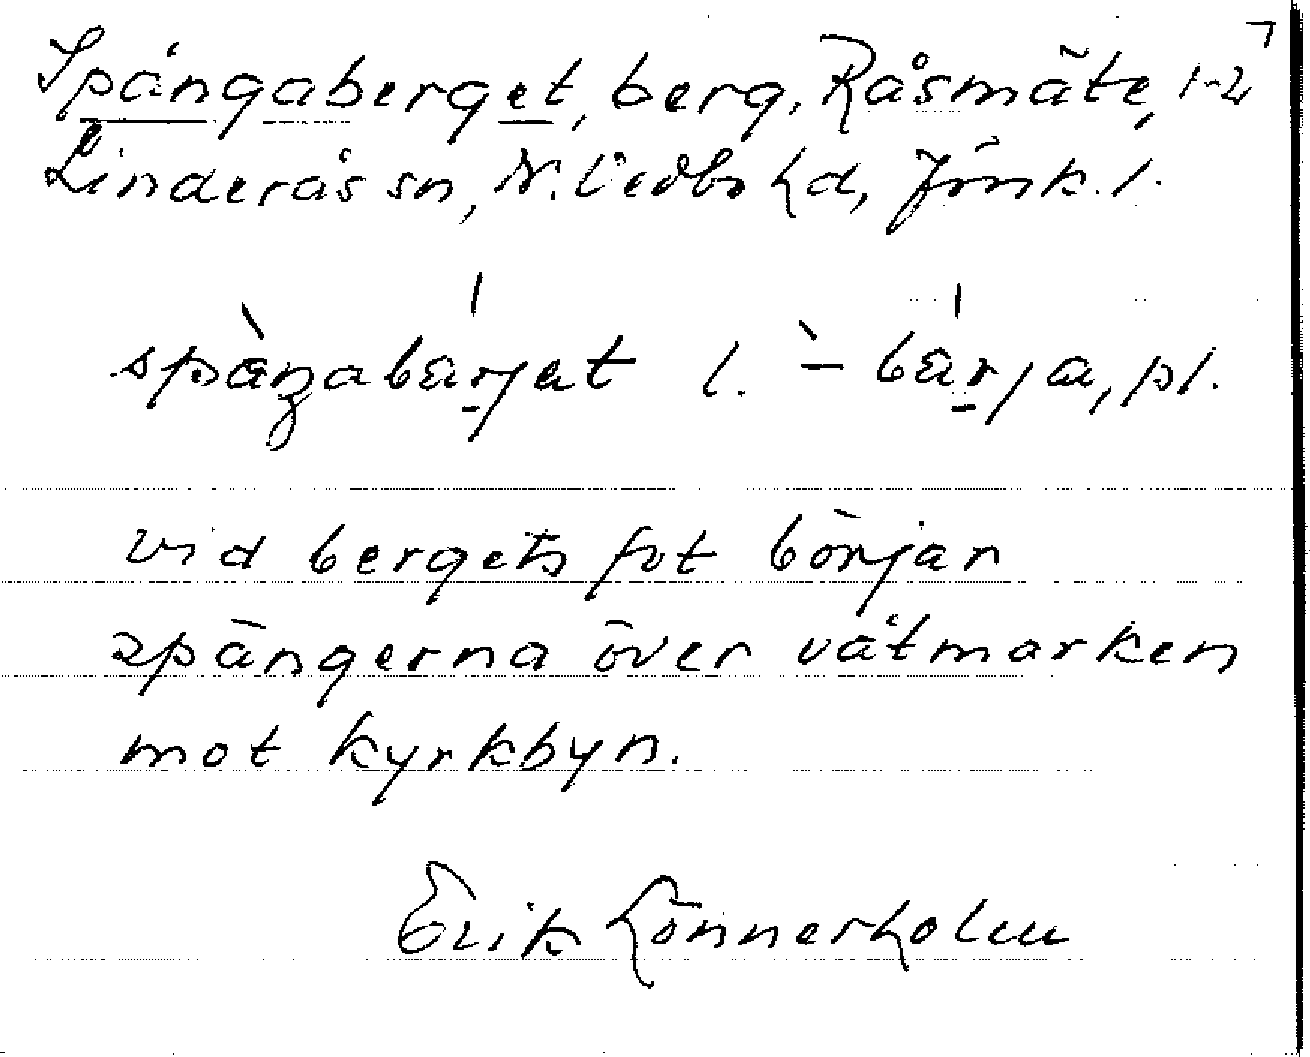 Spångaberget, berg, Råsmäte, 1-2
Linderås sn, N. Vedbo hd, Jönk. l.
spàŋabàrjat l. ̀- bàrja, pl.
vid bergets fot börjar
spängerna över våtmarken
mot kyrkbyn.
Erik Lönnerholm